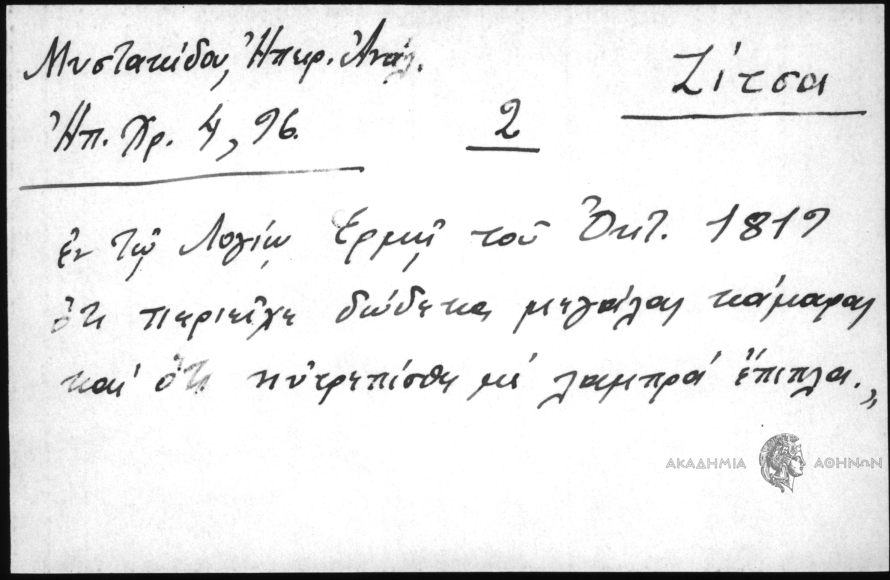 Μυστακίδου, Ἠπειρ. Ἀνάλ.
Ζίτσα
Ἠπ. Χρ. 4, 96.
2
ἐν τῷ Λογίῳ Ἑρμῇ τοῦ Ὀκτ. 1819
ὅτι περιεῖχε δώδεκα μεγάλας κάμαρας
καὶ ὅτι ηὐτρεπίσθη μὲ λαμπρὰ ἔπιπλα.„
ΑΚΑΔΗΜΙΑ ΑΘΗΝΩΝ